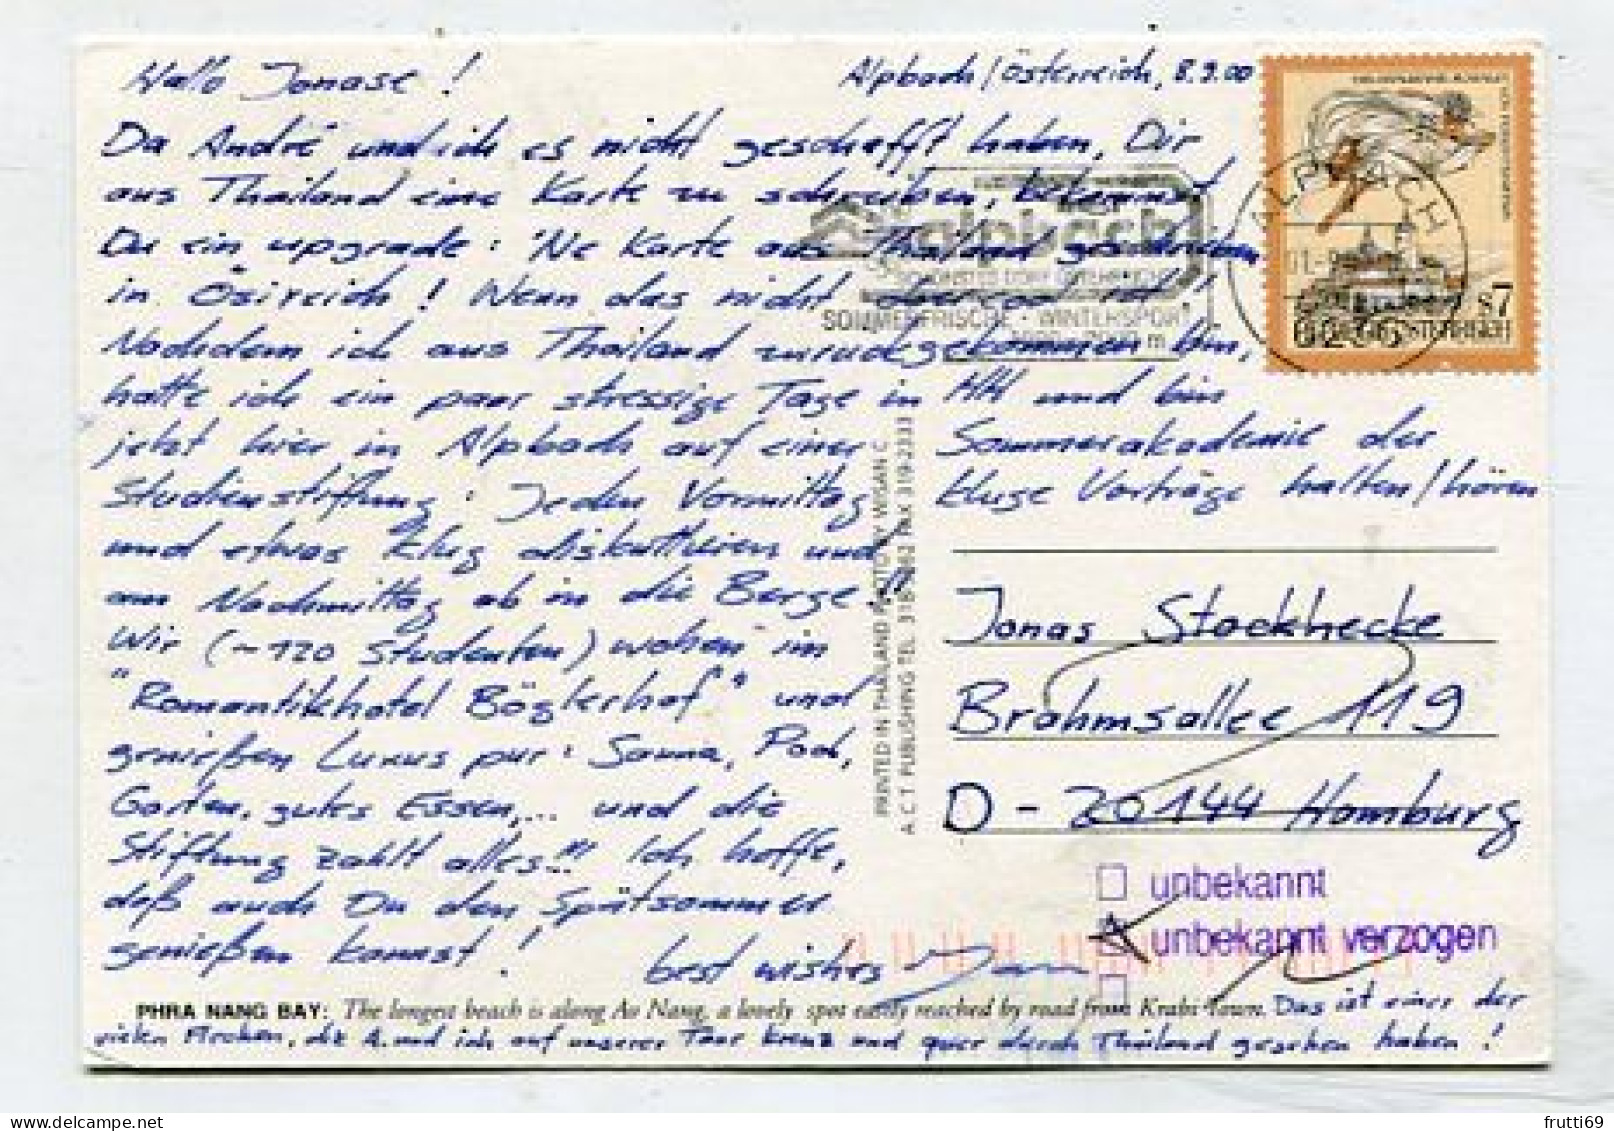 Hallo Jonase!
Alpbach/Österreich, 8.9.00
Da André und ich es nicht geschafft haben, Dir
aus Thailand eine Karte zu schreiben, bekommst
Du ein upgrade: 'Ne Karte aus Thailand geschrieben
in Ösireich! Wenn das nicht obercool ist!
Nachdem ich aus Thailand zurückgekommen bin,
hatte ich ein paar stressige Tage in HH und bin
jetzt hier in Alpbach auf einer Sommerakademie der
Studienstiftung: Jeden Vormittag kluge Vorträge halten/hören
und etwas klug diskuttieren und
am Nachmittag ab in die Berge!!
Wir (~120 Studenten) wohen im
"Romantikhotel Böglerhof" und
genießen Luxus pur: Sauna, Pool,
Garten, gutes Essen,... und die
Stiftung zahlt alles!!! Ich hoffe,
daß auch Du den Spätsommer
genießen kannst!
best wishes
Jonas Stockhecke
Brahmsallee 119
D - 20144 Hamburg
unbekannt
unbekannt verzogen
alpbach
SCHÖNSTES DORF ÖSTERREICHS
SOMMERFRISCHE • WINTERSPORT
ALPBACH
6236
S7
PRINTED IN THAILAND PHOTO BY WISAN C
A.C.T. PUBLISHING TEL. 318-5862 FAX 319-2333
PHRA NANG BAY: The longest beach is along Ao Nang, a lovely spot easily reached by road from Krabi Town. Das ist einer der
vielen Flecken, die A. und ich auf unserer Tour kreuz und quer durch Thailand gesehen haben!
frutti69